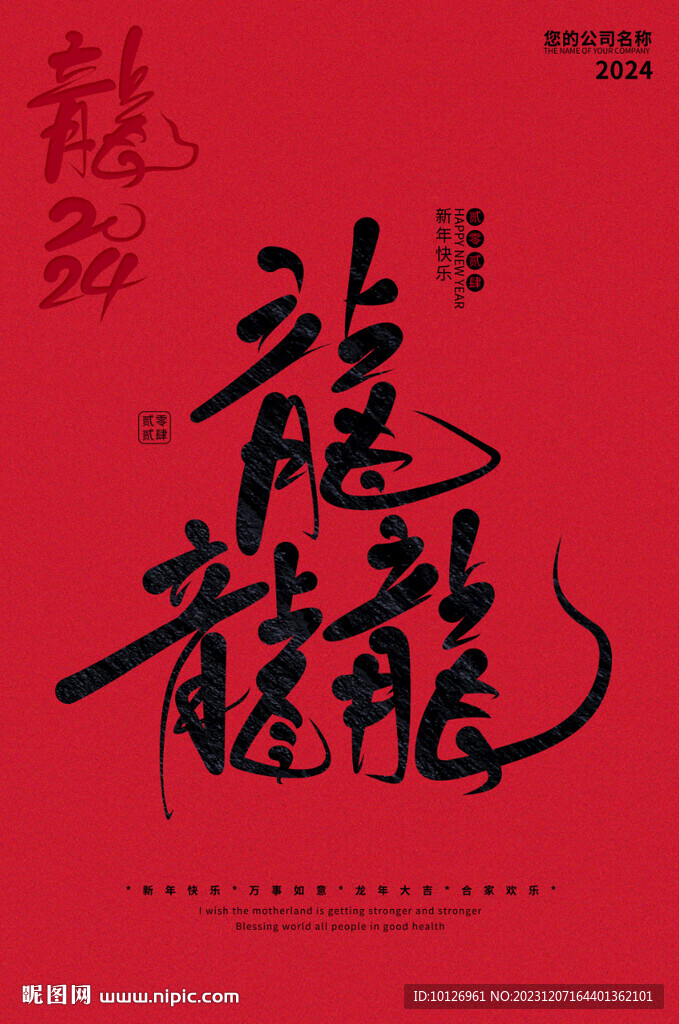 龍
2024
您的公司名称
THE NAME OF YOUR COMPANY
2024
贰零贰肆
HAPPY NEW YEAR
新年快乐
龍
龍龍
贰零
贰肆
*新年快乐*万事如意*龙年大吉*合家欢乐*
I wish the motherland is getting stronger and stronger
Blessing world all people in good health
昵图网 www.nipic.com
ID:10126961 NO:20231207164401362101